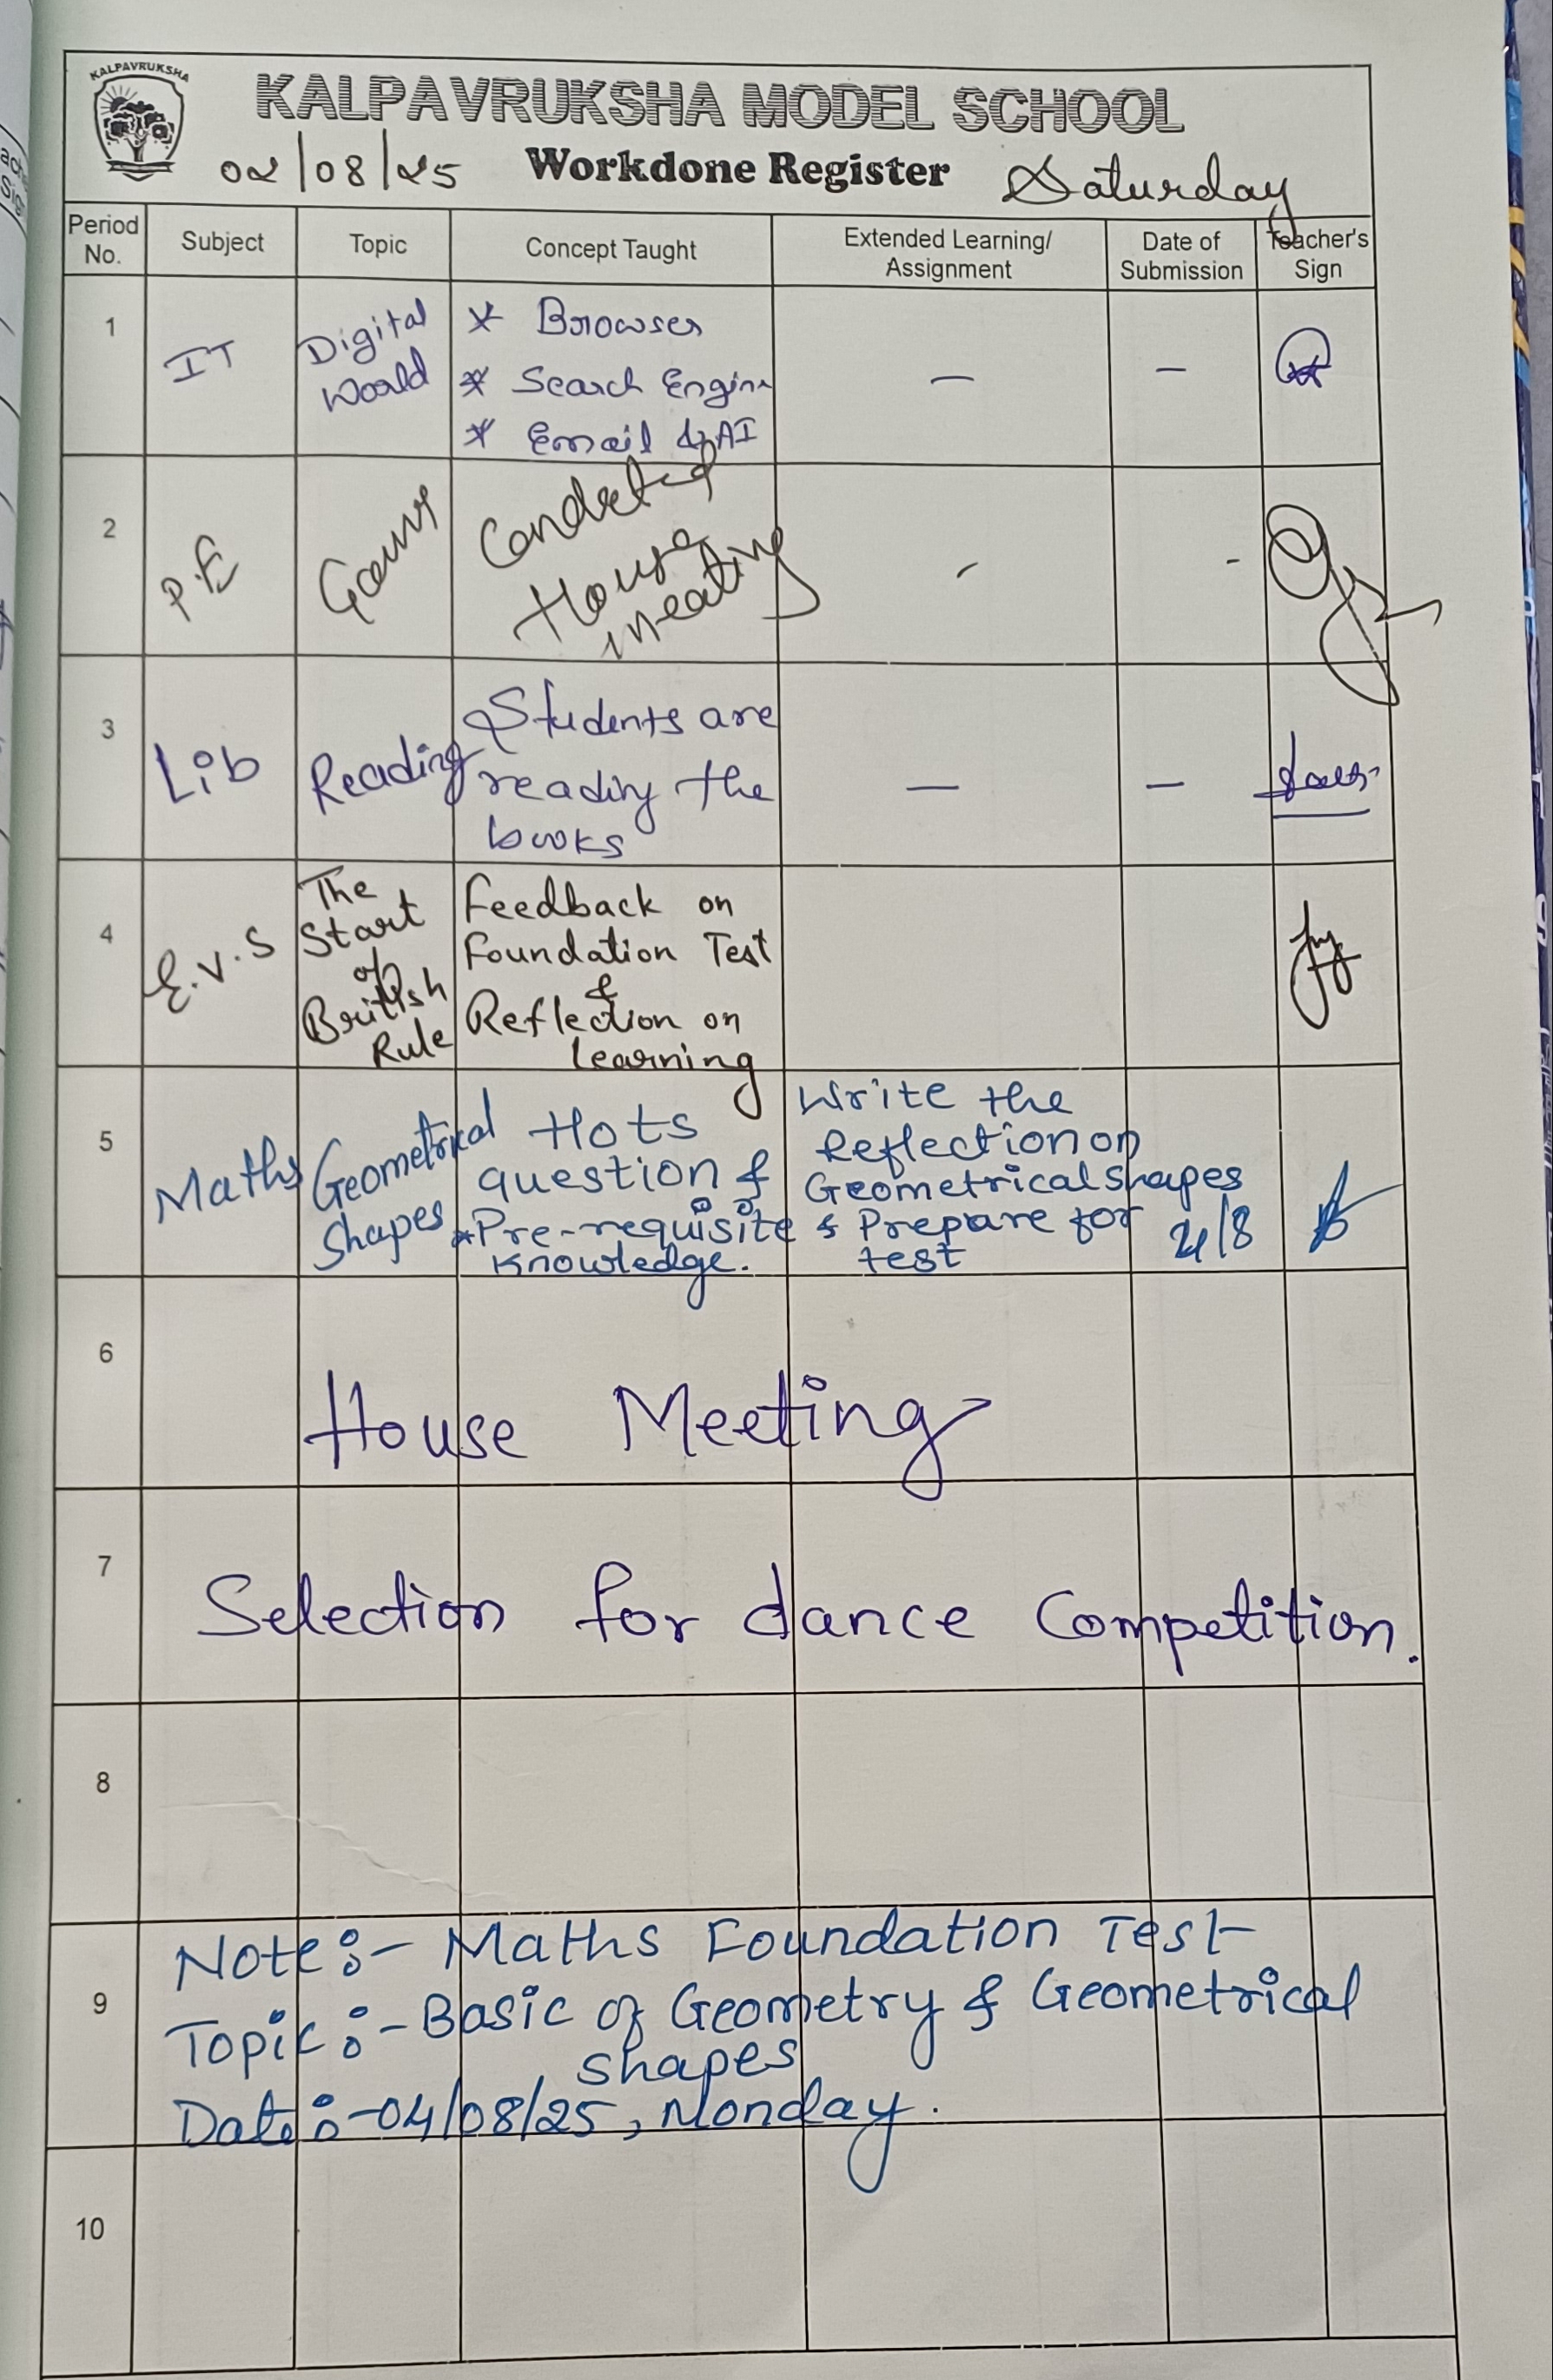 KALPAVRUKSHA
KALPAVRUKSHA MODEL SCHOOL
02/08/25 Workdone Register Saturday
Period No. Subject Topic Concept Taught Extended Learning/ Assignment Date of Submission Teacher's Sign
1 IT Digital World * Browser
* Search Engine
* Email & AI
— —
2 P.E Games Conducted
House
meeting
- -
3 Lib Reading Students are
reading the
books
— —
4 E.V.S The
Start
of
British
Rule
Feedback on
Foundation Test
&
Reflection on
learning
5 Maths Geometrical
Shapes
Hots
question &
*Pre-requisite
Knowledge.
Write the
Reflection on
Geometrical shapes
& Prepare for
test
4/8
6 House Meeting
7 Selection for dance Competition.
8
9 Note:- Maths Foundation Test
Topic:- Basic of Geometry & Geometrical
shapes
Date:- 04/08/25, Monday.
10